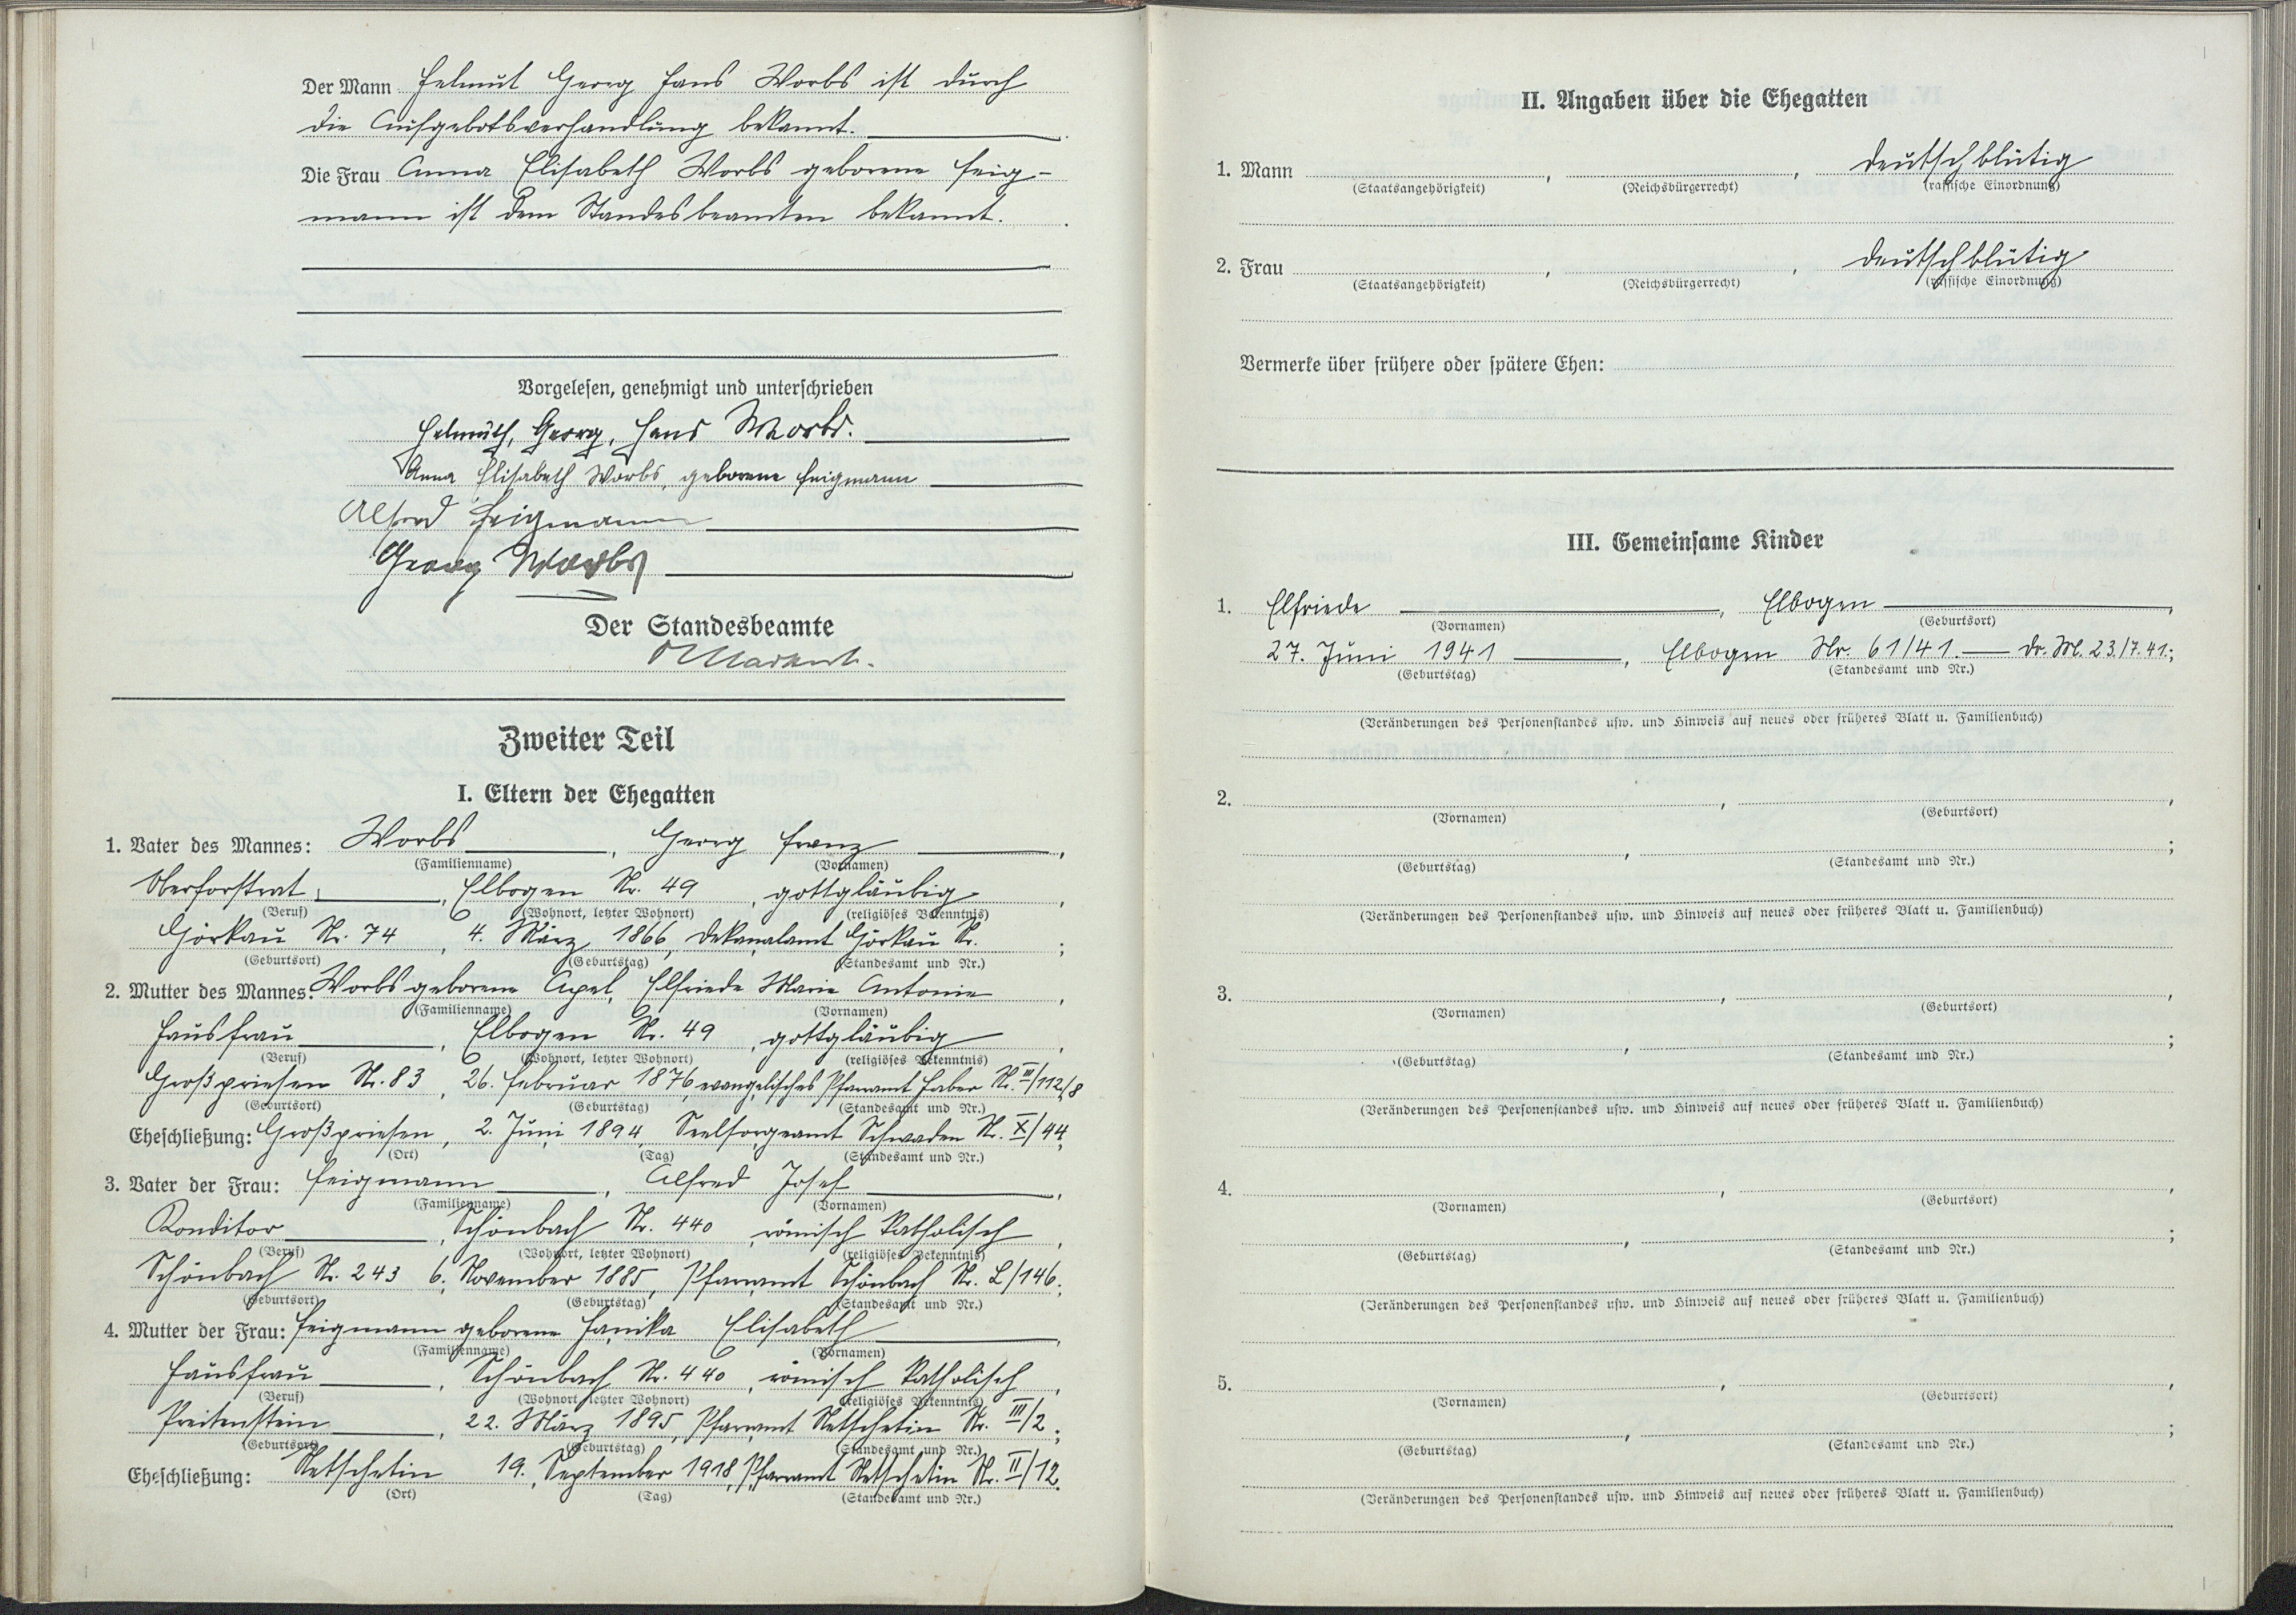 Der Mann Helmut Georg Hans Worbs ist durch
die Aufgebotsverhandlung bekannt.
Die Frau Anna Elisabeth Worbs geborene Feig-
mann ist dem Standesbeamten bekannt.
Vorgelesen, genehmigt und unterschrieben
Helmuth, Georg, Hans Worbs.
Anna Elisabeth Worbs, geborene Feigmann
Alfred Feigmann
Georg Worbs
Der Standesbeamte
Zweiter Teil
I. Eltern der Ehegatten
1. Vater des Mannes: Worbs, Georg Franz,
(Familienname) (Vornamen)
Oberforstrat, Elbogen Nr. 49, gottgläubig,
(Beruf) (Wohnort, letzter Wohnort) (religiöses Bekenntnis)
Görkau Nr. 74, 4. März 1866, Dekanalamt Görkau Nr. ;
(Geburtsort) (Geburtstag) (Standesamt und Nr.)
2. Mutter des Mannes: Worbs geborene Apel, Elfriede Marie Antonie,
(Familienname) (Vornamen)
Hausfrau, Elbogen Nr. 49, gottgläubig,
(Beruf) (Wohnort, letzter Wohnort) (religiöses Bekenntnis)
Großpriesen Nr. 83, 26. Februar 1876, evangelisches Pfarramt Haber Nr. III/112/8
(Geburtsort) (Geburtstag) (Standesamt und Nr.)
Eheschließung: Großpriesen, 2. Juni 1894, Seelsorgeamt Schwaden Nr. X/44,
(Ort) (Tag) (Standesamt und Nr.)
3. Vater der Frau: Feigmann, Alfred Josef,
(Familienname) (Vornamen)
Konditor, Schönbach Nr. 440, römisch katholisch,
(Beruf) (Wohnort, letzter Wohnort) (religiöses Bekenntnis)
Schönbach Nr. 243 6. November 1885, Pfarramt Schönbach Nr. L/146;
(Geburtsort) (Geburtstag) (Standesamt und Nr.)
4. Mutter der Frau: Feigmann geborene Hanika Elisabeth,
(Familienname) (Vornamen)
Hausfrau, Schönbach Nr. 440, römisch katholisch,
(Beruf) (Wohnort, letzter Wohnort) (religiöses Bekenntnis)
Preitenstein, 22. März 1895, Pfarramt Netschetin Nr. III/2;
(Geburtsort) (Geburtstag) (Standesamt und Nr.)
Eheschließung: Netschetin 19. September 1918, Pfarramt Netschetin Nr. II/12.
(Ort) (Tag) (Standesamt und Nr.)
II. Angaben über die Ehegatten
1. Mann , , deutschblütig
(Staatsangehörigkeit) (Reichsbürgerrecht) (rassische Einordnung)
2. Frau , , deutschblütig
(Staatsangehörigkeit) (Reichsbürgerrecht) (rassische Einordnung)
Vermerke über frühere oder spätere Ehen:
III. Gemeinsame Kinder
1. Elfriede, Elbogen,
(Vornamen) (Geburtsort)
27. Juni 1941, Elbogen Nr. 61/41. Dr. M. 23./7.41.;
(Geburtstag) (Standesamt und Nr.)
(Veränderungen des Personenstandes usw. und Hinweis auf neues oder früheres Blatt u. Familienbuch)
2. , ,
(Vornamen) (Geburtsort)
, ;
(Geburtstag) (Standesamt und Nr.)
(Veränderungen des Personenstandes usw. und Hinweis auf neues oder früheres Blatt u. Familienbuch)
3. , ,
(Vornamen) (Geburtsort)
, ;
(Geburtstag) (Standesamt und Nr.)
(Veränderungen des Personenstandes usw. und Hinweis auf neues oder früheres Blatt u. Familienbuch)
4. , ,
(Vornamen) (Geburtsort)
, ;
(Geburtstag) (Standesamt und Nr.)
(Veränderungen des Personenstandes usw. und Hinweis auf neues oder früheres Blatt u. Familienbuch)
5. , ,
(Vornamen) (Geburtsort)
, ;
(Geburtstag) (Standesamt und Nr.)
(Veränderungen des Personenstandes usw. und Hinweis auf neues oder früheres Blatt u. Familienbuch)